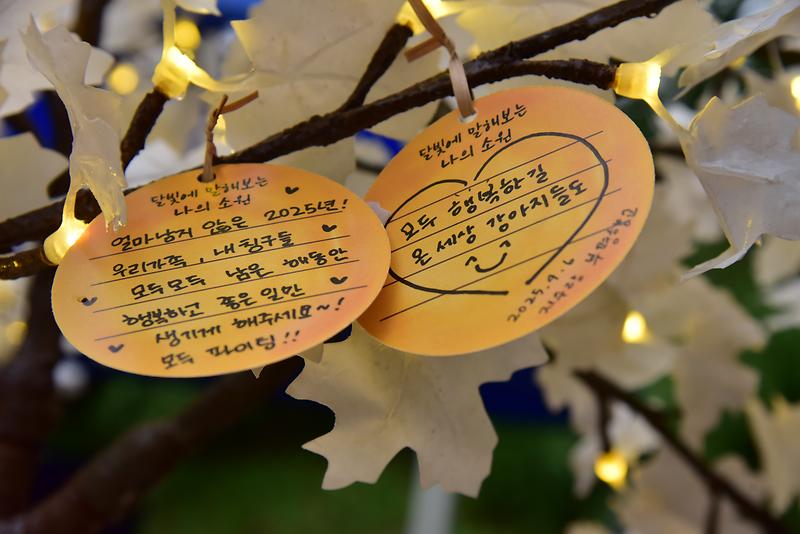 달빛에 말해보는
나의 소원
얼마남지 않은 2025년!
우리가족, 내 친구들
모두모두 남은 해동안
행복하고 좋은 일만
생기게 해주세요~!
모두 파이팅!!
달빛에 말해보는
나의 소원
모두 행복하길
온 세상 강아지들도
2025.9.6